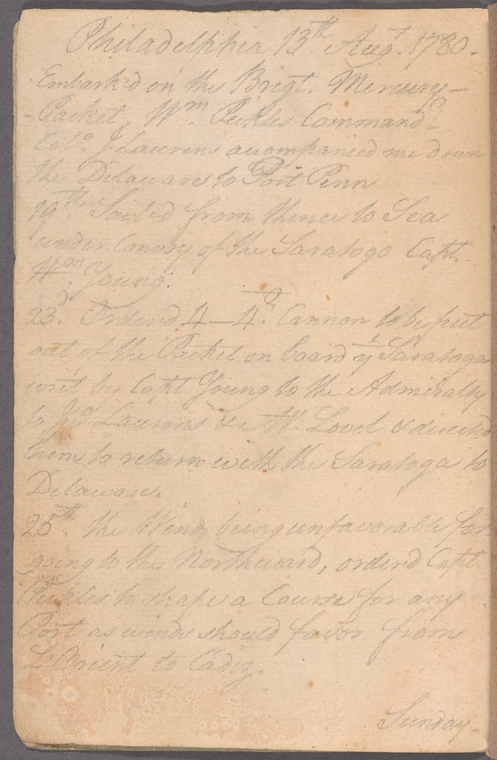 Philadelphia 13th Augt. 1780.
Embark'd on the Brigt. Mercury-
-Packet, Wm. Pickles Commandr.
Colo. J Laurens accompanied me down
the Delaware to Port Penn
19th Sailed from thence to Sea
under Convoy of the Saratoga Capt.
Wm. Young.
23d. Order'd 4-4 Cannon to be put
out of the Packet on board ye Saratoga
writ by Capt Young to the Admiralty
to Jno. Laurens & Lovel & directed
him to return with the Saratoga to
Delaware.
25th the Winds being unfavorable for
going to the Northward, orderd Capt
Pickles to shape a Course for any
Port as winds should favor from
L'Orient to Cadiz.
Sunday